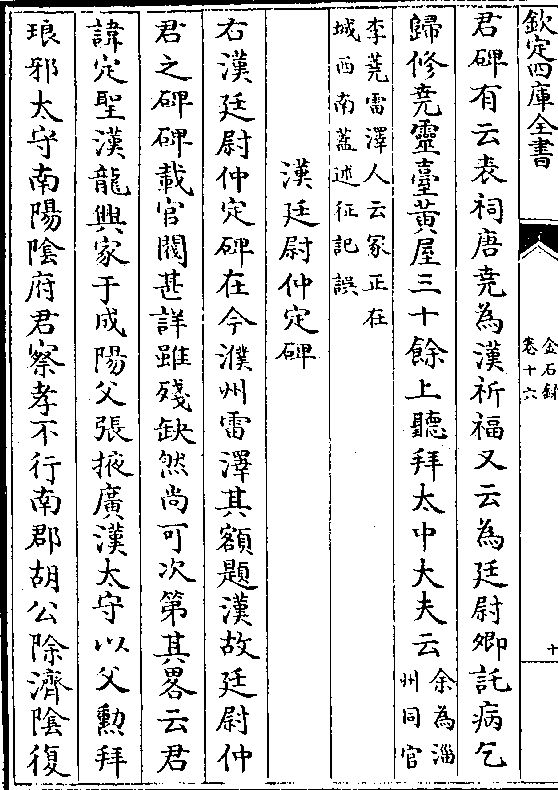 欽定四庫全書
金石録
卷十六
十
君碑有云表祠唐尭為漢祈福又云為廷尉卿託病乞
歸修尭靈臺黄屋三十餘上聽拜太中大夫云余為淄
州同官
李蕘雷澤人云冢正在
城西南葢述征記誤
漢廷尉仲定碑
右漢廷尉仲定碑在今濮州雷澤其額題漢故廷尉仲
君之碑碑載官閥甚詳雖殘缺然尚可次第其畧云君
諱定聖漢龍興家于成陽父張掖廣漢太守以父勲拜
琅邪太守南陽陰府君察孝不行南郡胡公除濟陰復